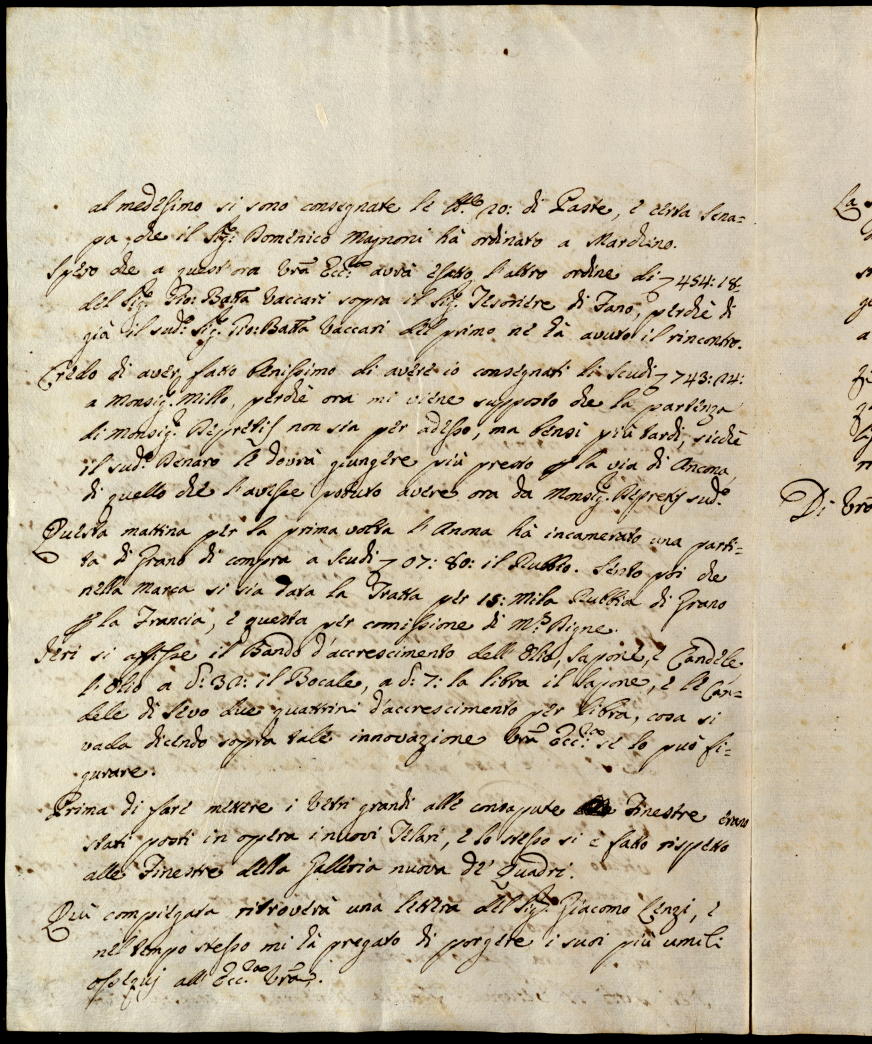 al medesimo si sono consegnate le lb.e 20: di Paste, e certa Sena=
pa che il Sig.r Domenico Magnoni hà ordinato a Marchino.
Spero che a quest'ora Vrã Ecc.za avrà esatto l'altro ordine di 7 454:18-
del Sig.r Gio: Batta Vaccari sopra il Sig.r Tesoriere di Fano, perchè di
già il sud.o Sig.r Gio: Batta Vaccari del primo ne hà avuto il rincontro.
Credo di aver fatto benissimo di avere io consegnati li Scudi 7 743:24:
a Monsig.r Millo, perchè ora mi viene supposto che la partenza
di Monsig.r Bepretis non sia per adesso, ma bensì più tardi, sicchè
il sud.o Denaro le dovrà giungere più presto p la via di Ancona,
di quello che l'avesse potuto avere ora da Monsig.r sud.o
Questa mattina per la prima volta l'Anona hà incamerato una parti=
ta di Grano di compra a Scudi 7 07:80: il Rubbio. Sento poi che
nella Marca si sia data la Tratta per 15: Mila Rubbia di Grano
p la Francia, e questa per comissione di M.r Digne.
Jeri si affisse il Bando d'accrescimento dell'Olio, Sapone, e Candele
l'Olio a b: 32: il Bocale, a b: 7: la libra il Sapone, e le Can=
dele di Sevo due quattrini d'accrescimento per libra, cosa si
vada dicendo sopra tale innovazione Vrã Ecc.za se lo può fi=
gurare.
Prima di fare mettere i Vetri grandi alle consapute Finestre erano
stati posti in opera i nuovi Telari, e lo stesso si è fatto rispetto
alle Finestre della Galleria nuova de' Quadri.
Quì compiegata ritroverà una lettera del Sig.r Giacomo Cenzi, e
nel tempo stesso mi hà pregato di porgere i suoi più umili
ossequj all'Ecc.za Vrã.
La
Di Vrã